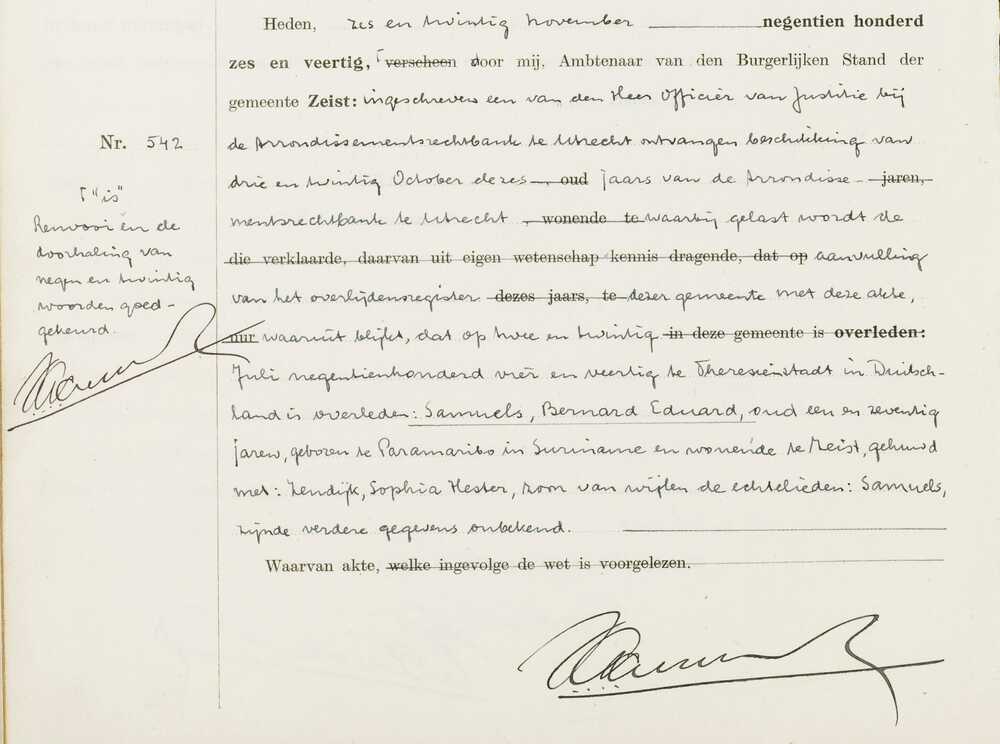 Heden, zes en twintig November negentien honderd
zes en veertig, ⌈ verscheen door mij, Ambtenaar van den Burgerlijken Stand der
gemeente Zeist: ingeschreven een van den Heer Officier van Justitie bij
Nr. 542
de Arrondissementsrechtbank te Utrecht ontvangen beschikking van
drie en twintig October dezes oud jaars van de Arrondisse- jaren,
mentsrechtbank te Utrecht, wonende te waarbij gelast wordt de
die verklaarde, daarvan uit eigen wetenschap kennis dragende, dat op aanvulling
van het overlijdensregister dezes jaars, te dezer gemeente met deze akte,
uur waaruit blijkt, dat op twee en twintig in deze gemeente is overleden:
Juli negentienhonderd vier en veertig te Theresienstadt in Duitsch-
land is overleden: Samuels, Bernard Eduard, oud een en zeventig
jaren, geboren te Paramaribo in Suriname en wonende te Zeist, gehuwd
met: Zendijk, Sophia Hester, zoon van wijlen de echtelieden: Samuels,
zijnde verdere gegevens onbekend.
Waarvan akte, welke ingevolge de wet is voorgelezen.
⌈ "is"
Renvooi en de
doorhaling van
negen en twintig
woorden goed-
gekeurd.